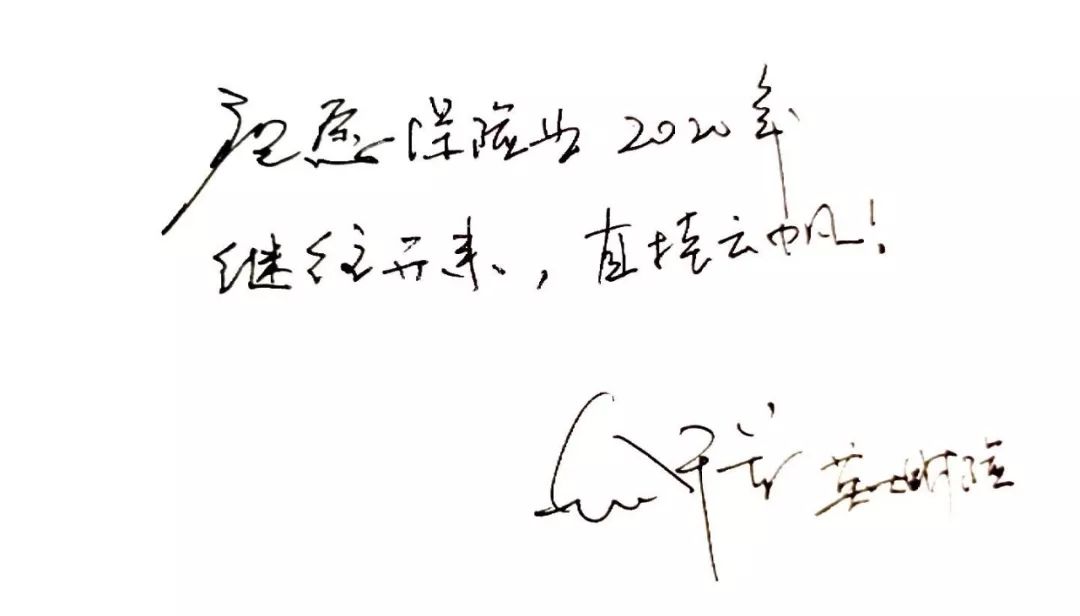 祝愿保险业2020年
继往开来,直挂云帆!
财险